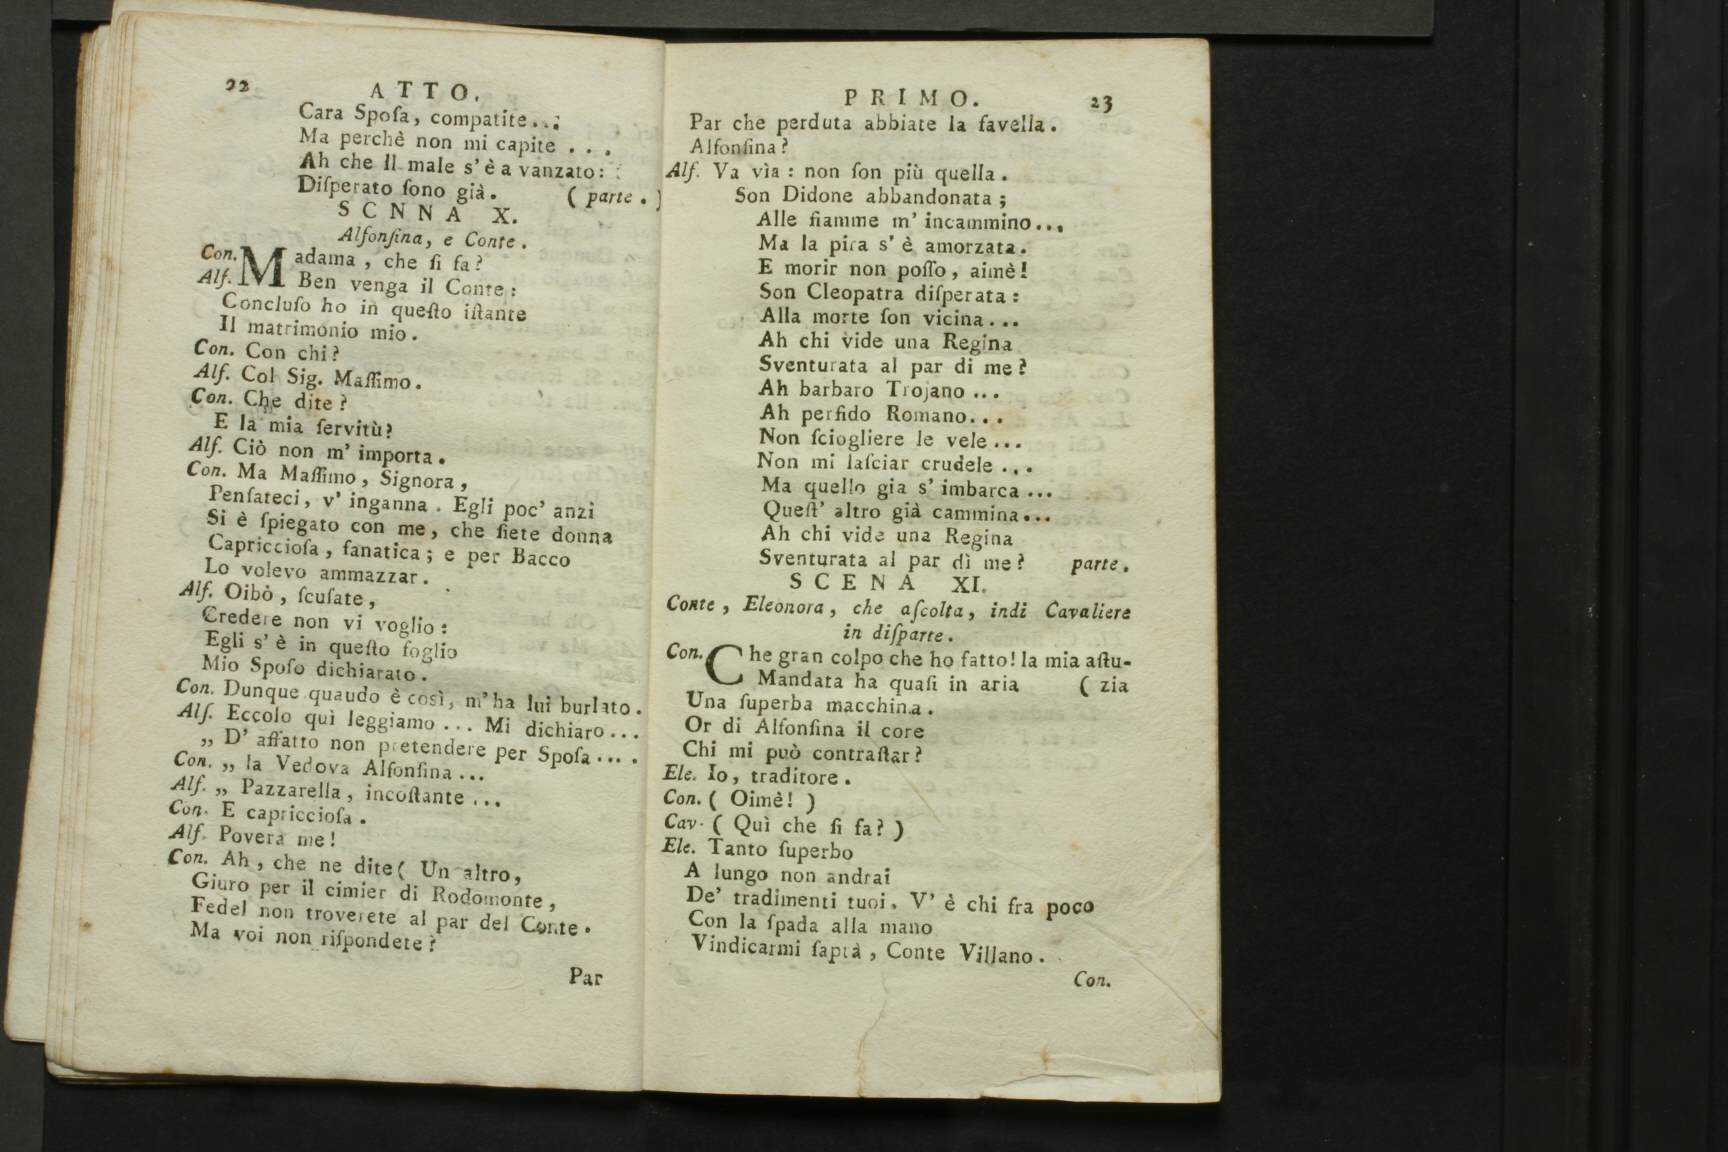 22 ATTO.
Cara Sposa, compatite...
Ma perchè non mi capite . . .
Ah che Il male s'è a vanzato:
Disperato sono già. ( parte . )
SCNNA X.
Alfonsina, e Conte.
Con. Madama, che si fa?
Alf. Ben venga il Conte:
Concluso ho in questo istante
Il matrimonio mio.
Con. Con chi?
Alf. Col Sig. Massimo.
Con. Che dite?
E la mia servitù?
Alf. Ciò non m'importa.
Con. Ma Massimo, Signora,
Pensateci, v'inganna. Egli poc'anzi
Si è spiegato con me, che siete donna
Capricciosa, fanatica; e per Bacco
Lo volevo ammazzar.
Alf. Oibò, scusate,
Credere non vi voglio:
Egli s'è in questo foglio
Mio Sposo dichiarato.
Con. Dunque quaudo è così, m'ha lui burlato.
Alf. Eccolo quì leggiamo ... Mi dichiaro ...
„ D'affatto non pretendere per Sposa ....
Con. „ la Vedova Alfonsina ...
Alf. „ Pazzarella, incostante ...
Con. E capricciosa.
Alf. Povera me!
Con. Ah, che ne dite( Un altro,
Giuro per il cimier di Rodomonte,
Fedel non troverete al par del Conte.
Ma voi non rispondete?
Par
PRIMO. 23
Par che perduta abbiate la favella.
Alfonsina?
Alf. Va vìa: non son più quella.
Son Didone abbandonata;
Alle fiamme m'incammino...
Ma la pira s'è amorzata.
E morir non posso, aimè!
Son Cleopatra disperata:
Alla morte son vicina...
Ah chi vide una Regina
Sventurata al par di me?
Ah barbaro Trojano ...
Ah perfido Romano...
Non sciogliere le vele...
Non mi lasciar crudele ...
Ma quello gia s'imbarca ...
Quest'altro già cammina...
Ah chi vide una Regina
Sventurata al par dì me? parte.
SCENA XI.
Conte, Eleonora, che ascolta, indi Cavaliere
in disparte.
Con. Che gran colpo che ho fatto! la mia astu-
Mandata ha quasi in aria ( zia
Una superba macchina.
Or di Alfonsina il core
Chi mi può contrastar?
Ele. Io, traditore.
Con. ( Oimè! )
Cav. ( Quì che si fa? )
Ele. Tanto superbo
A lungo non andrai
De' tradimenti tuoi. V'è chi fra poco
Con la spada alla mano
Vindicarmi saprà, Conte Villano.
Con.